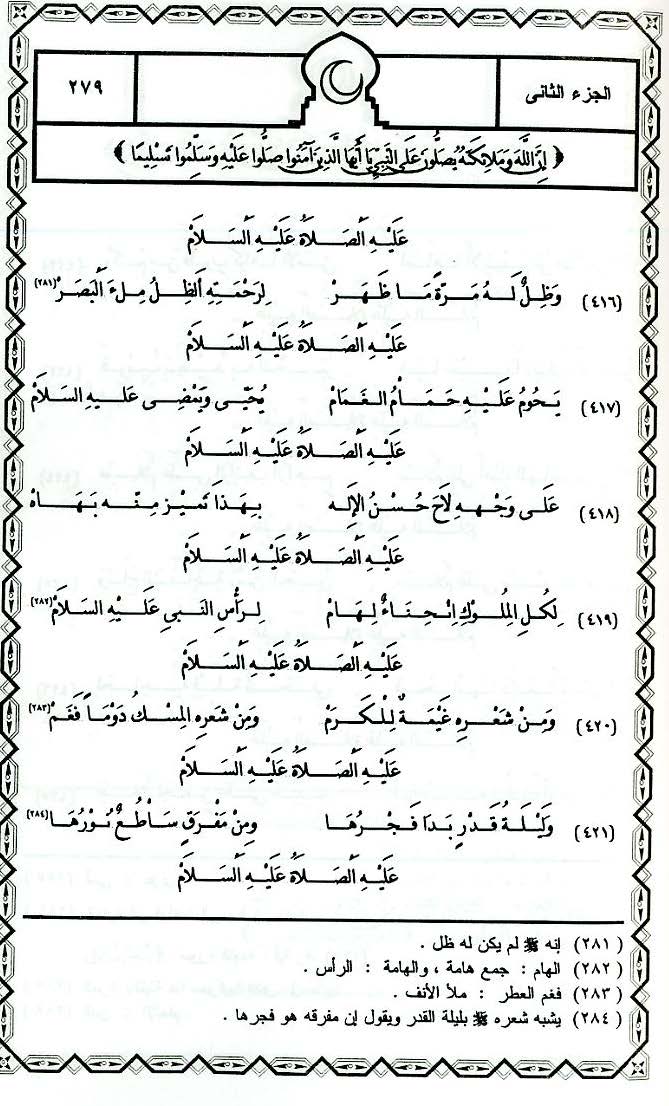 الجزء الثانى
٢٧٩
﴿ إِنَّ اللَّهَ وَمَلائِكَتَهُ يُصَلُّونَ عَلَى النَّبِيِّ يَا أَيُّهَا الَّذِينَ آمَنُوا صَلُّوا عَلَيْهِ وَسَلِّمُوا تَسْلِيمًا ﴾
عَلَيْهِ الصَّلَاةُ عَلَيْهِ السَّلَامْ
(٤١٦) وَظِلٌّ لَهُ مَرَّةً مَا ظَهَرْ لِرَحْمَتِهِ الظِلُّ مِلءَ الْبَصَرْ (٢٨١)
عَلَيْهِ الصَّلَاةُ عَلَيْهِ السَّلَامْ
(٤١٧) يَحُومُ عَلَيْهِ حَمَامُ الغَمَامْ يُحَيِّى وَيَمْضِى عَلَيهِ السَلامْ
عَلَيْهِ الصَّلَاةُ عَلَيْهِ السَّلَامْ
(٤١٨) عَلَى وَجْهِهِ لاَحَ حُسْنُ الإِلَه بِهَذَا تَمَيَّز مِنْه بَهَاهْ
عَلَيْهِ الصَّلَاةُ عَلَيْهِ السَّلَامْ
(٤١٩) لِكُلِ المِلُوكِ اِنْحِنَاءٌ لِهَامْ لِرَأْسِ النَبِي عَلَيْهِ السَلَامْ (٢٨٢)
عَلَيْهِ الصَّلَاةُ عَلَيْهِ السَّلَامْ
(٤٢٠) وَمِنْ شَعْرِهِ غَيْمَةٌ لِلْكَرَمْ وَمِنْ شَعرِه المِسْكُ دَوْمَاً فَغَمْ (٢٨٣)
عَلَيْهِ الصَّلَاةُ عَلَيْهِ السَّلَامْ
(٤٢١) وَلَيْلَةُ قَدْرٍ بَدَا فَجْرُهَا وَمِنْ مَفْرَقٍ سَاطُعٌ نُوْرُهَا (٢٨٤)
عَلَيْهِ الصَّلَاةُ عَلَيْهِ السَّلَامْ
(٢٨١) إنه ﷺ لم يكن له ظل .
(٢٨٢) الهام : جمع هامة ، والهامة : الرأس .
(٢٨٣) فغم العطر : ملأ الأنف .
(٢٨٤) يشبه شعره ﷺ بليلة القدر ويقول إن مفرقه هو فجرها .